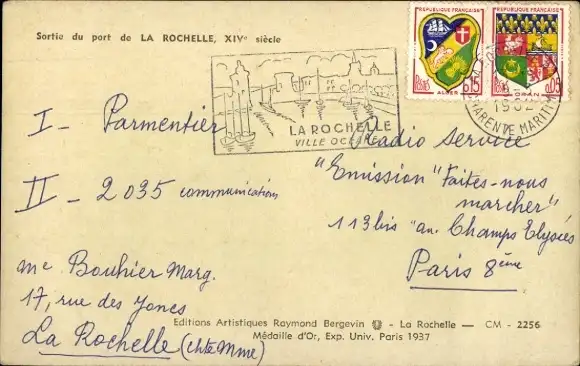 Sortie du port de LA ROCHELLE, XIVe siècle
REPUBLIQUE FRANÇAISE
POSTES
0,15
ALGER
REPUBLIQUE FRANÇAISE
POSTES
0,05
ORAN
CHARENTE MARITIME
LA ROCHELLE
VILLE OCEANE
I - Parmentier
II - 2 035 communications
Radio Service
"Emission "Faites-nous
marcher"
113 bis av. Champs Elysées
Paris 8ème
Me Bouhier Marg.
17, rue des Joncs
La Rochelle (chte Mme)
Editions Artistiques Raymond Bergevin - La Rochelle — CM - 2256
Médaille d'Or, Exp. Univ. Paris 1937